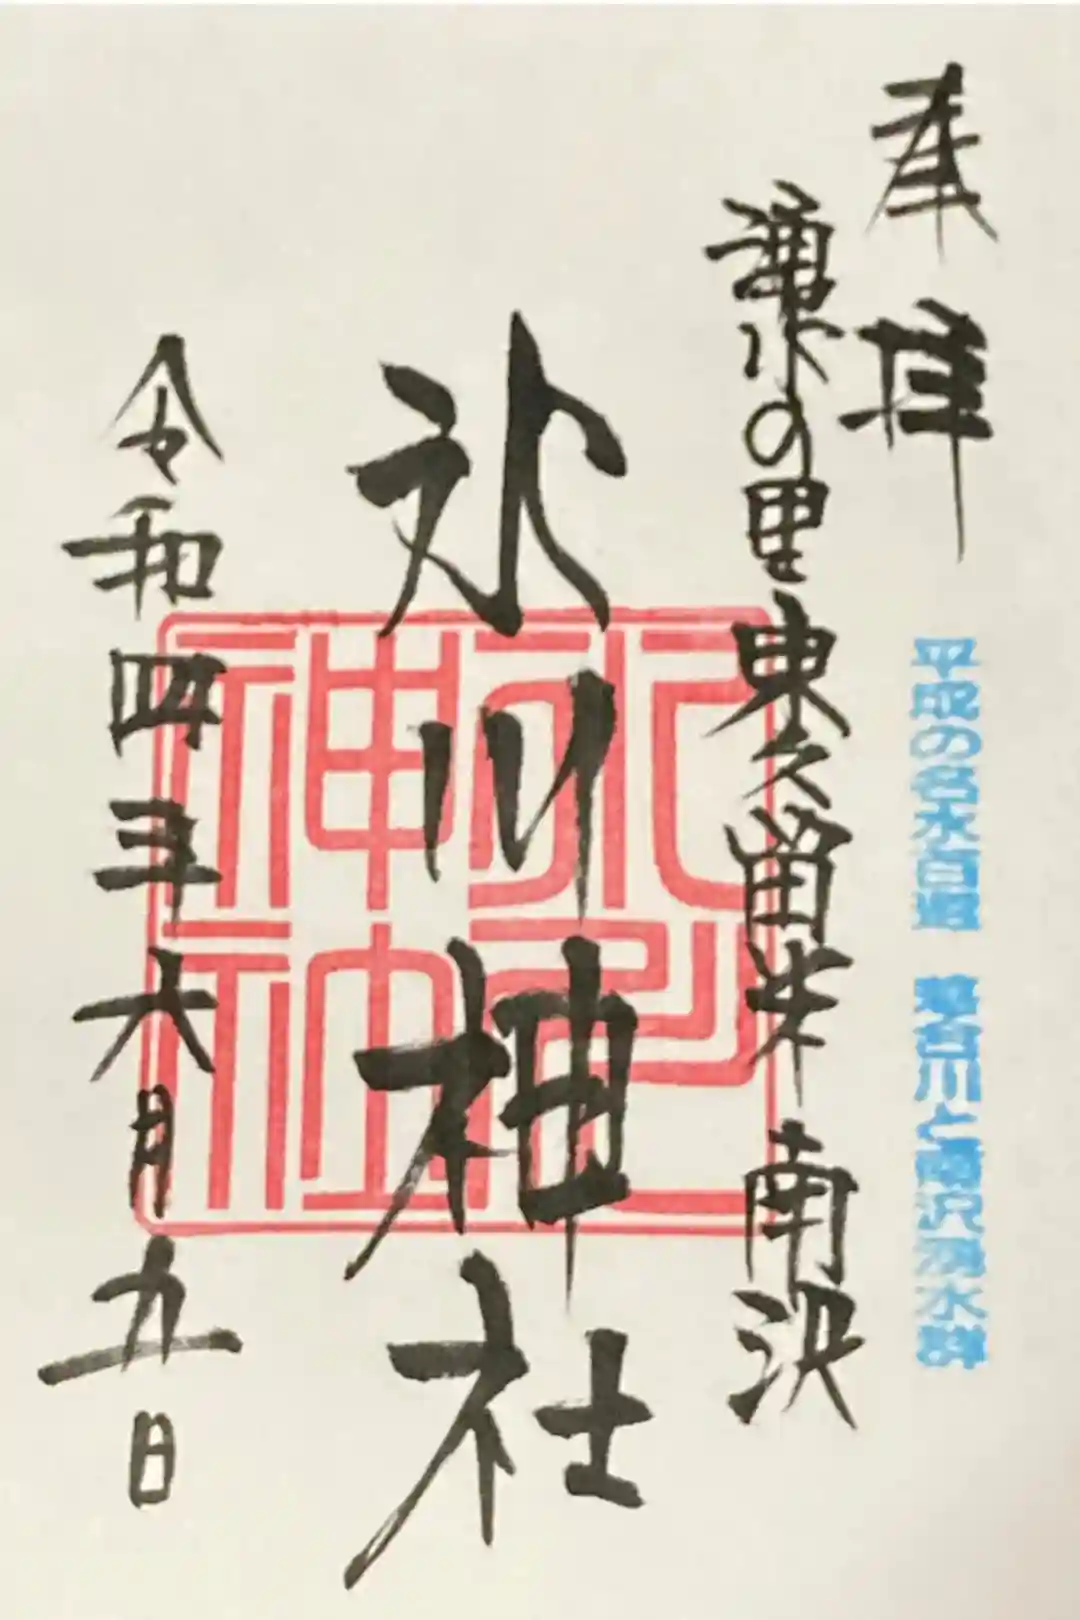 奉拝
平成の名水百選 落合川と南沢湧水群
湧水の里東久留米南沢
氷川神社
氷川神社
令和四年六月九日